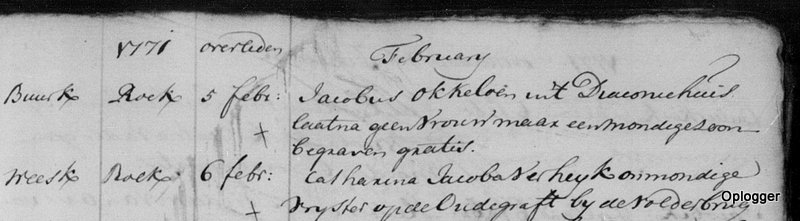 1771 overleden February
Buurk Roek 5 febr: Jacobus Okkeloen uit Diaconiehuis
laat na geen vrouw maar een mondige zoon
begraven gratis.
Weesk Roek 6 febr: Catharina Jacoba Verheyk onmondige
vryster op de Oudegraft by de Volderbrug
Oplogger